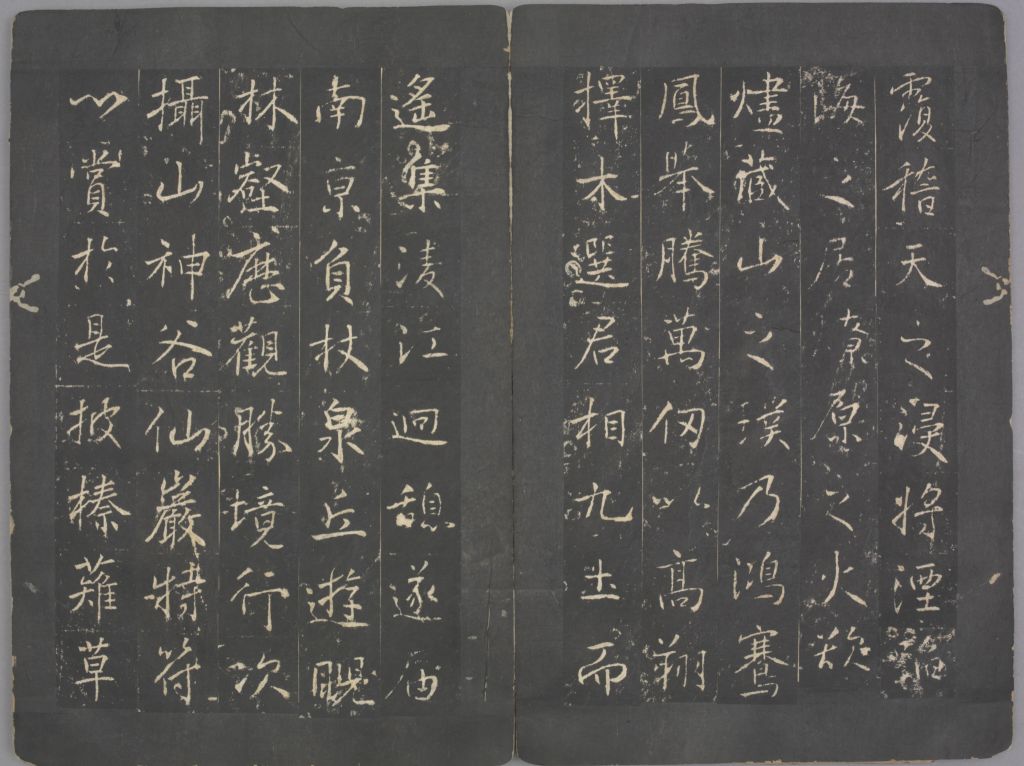 覆稽天之浸將湮
海之居燎原之火欻
燼藏山之璞乃鴻騫
鳳舉騰萬仞以高翔
擇木選君相九土而
遙集淩江迥憩遂届
南京負杖泉丘遊睨
林壑歷觀勝境行次
攝山神谷仙巖特符
心賞於是披榛薙草